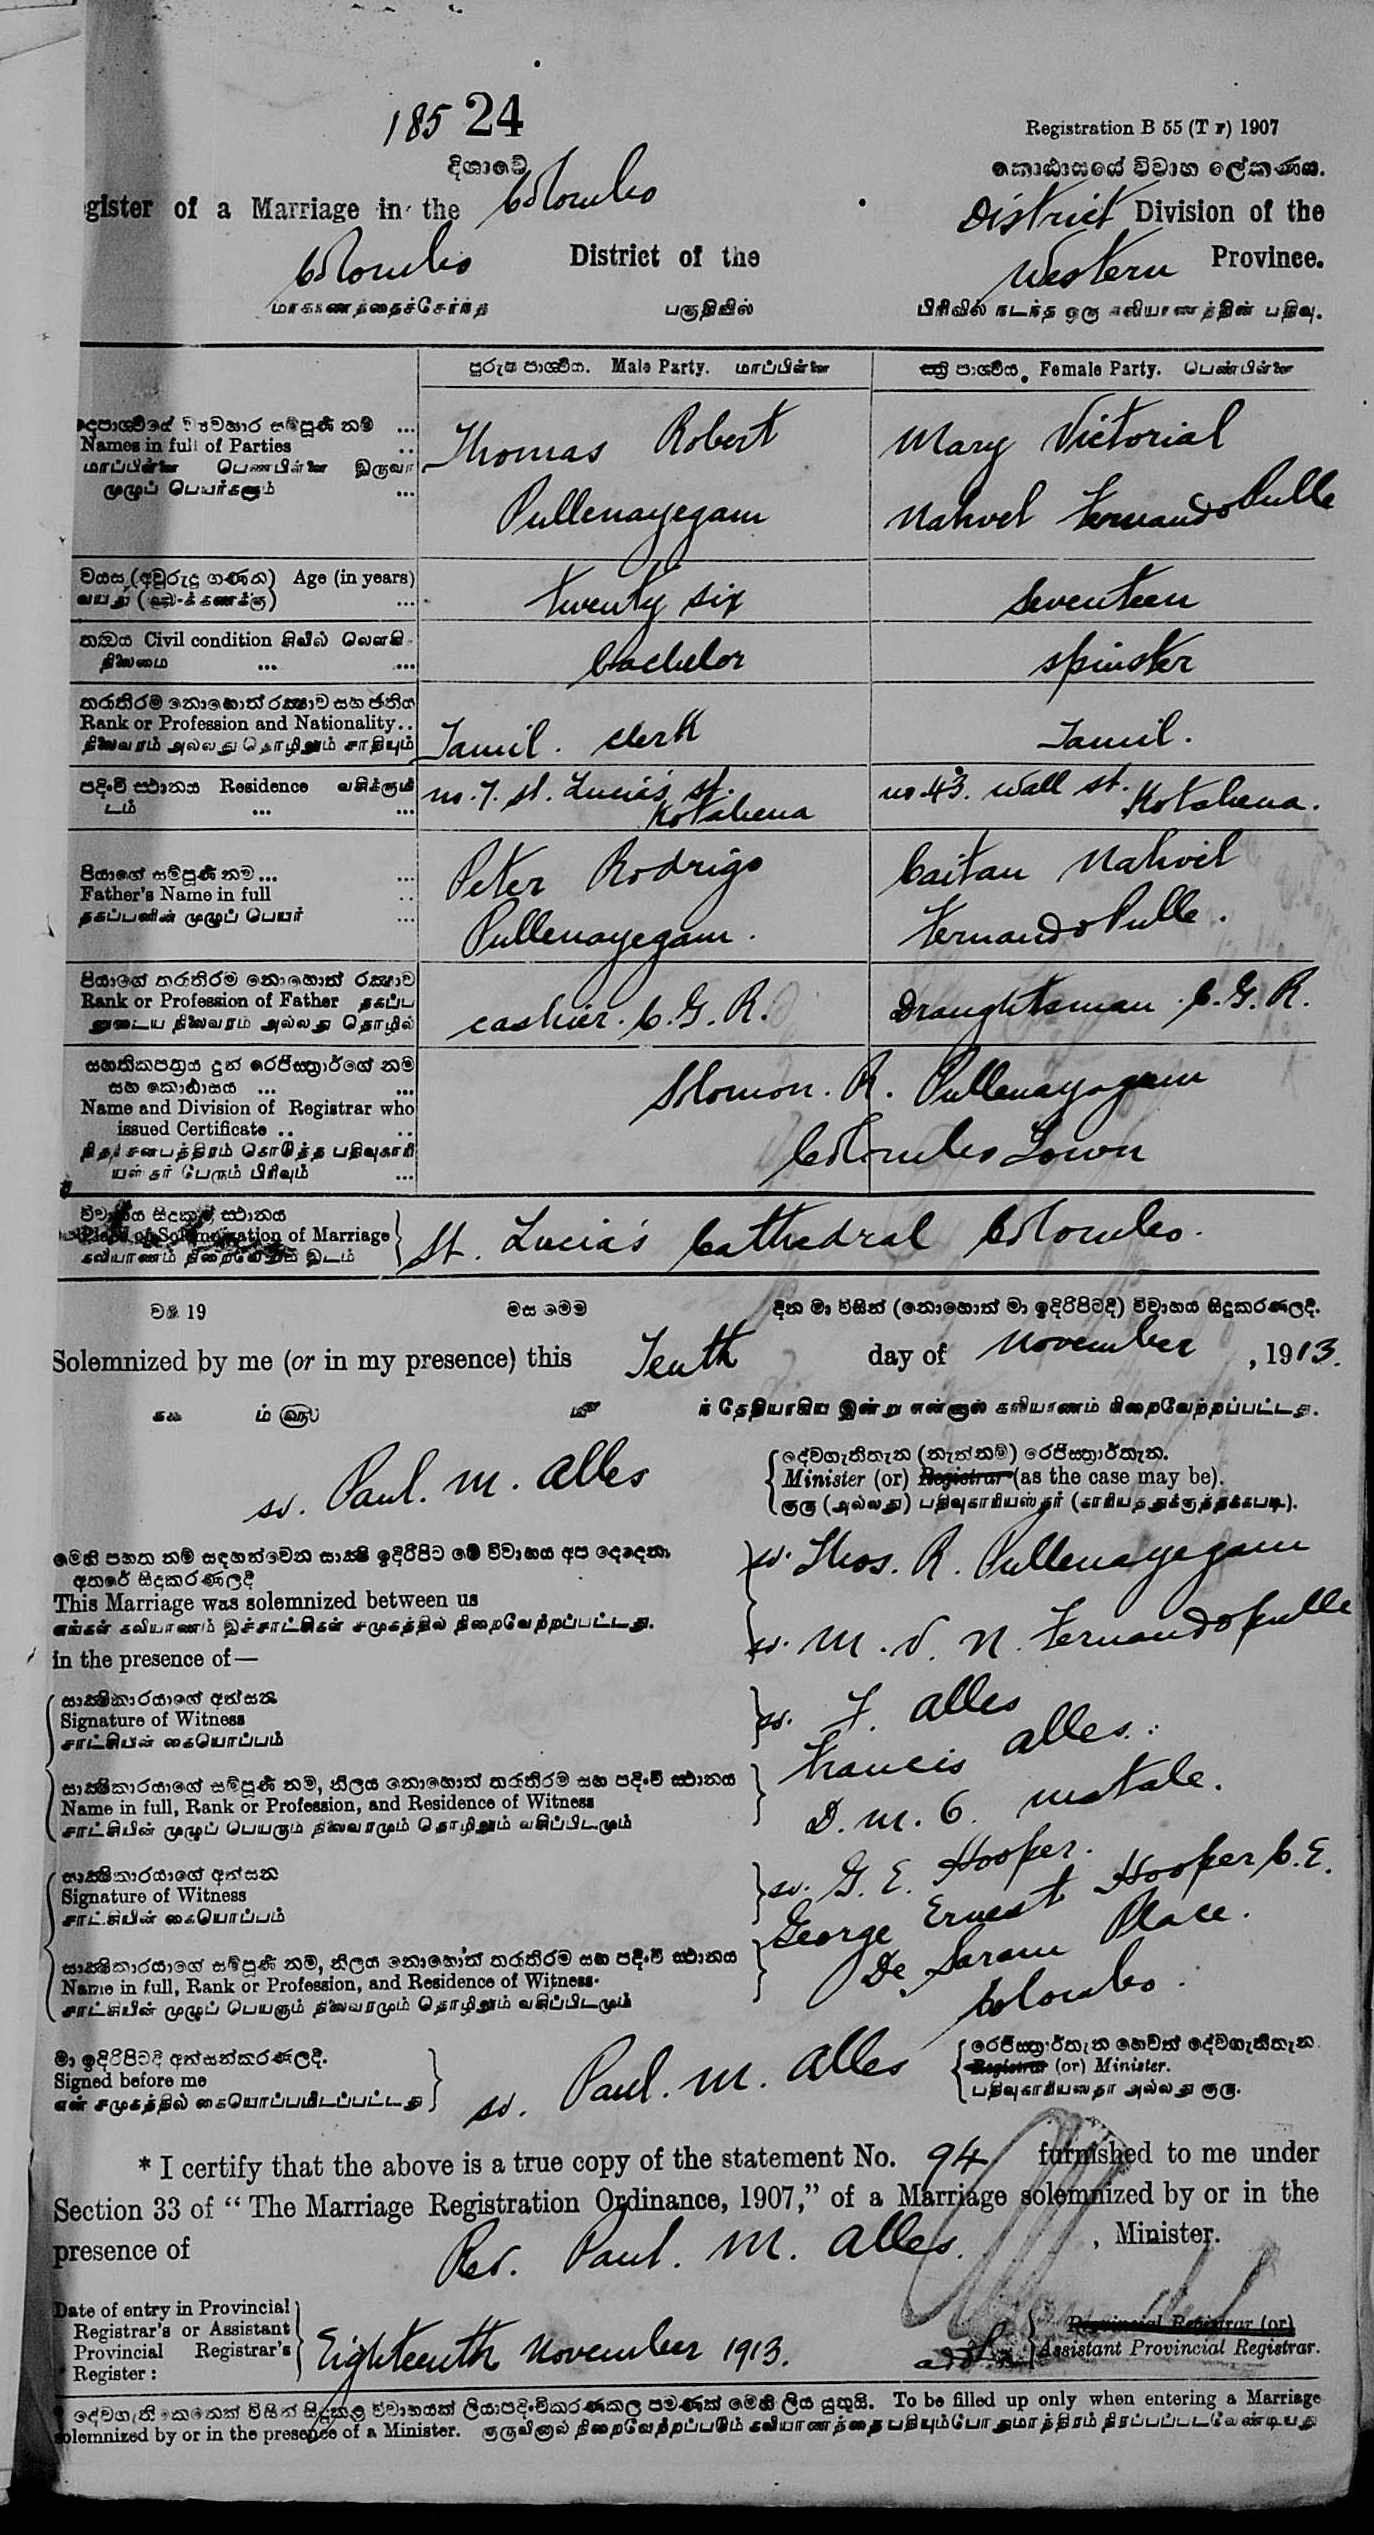 185 24
Registration B 55 (T F) 1907
දිශාවේ
කොඨාසයේ විවාහ ලේකණය.
egister of a Marriage in the Colombo District Division of the
Colombo District of the Western Province.
மாகாணத்தைச்சேர்ந்த பகுதியில் பிரிவில் நடந்த ஒரு கலியாணத்தின் பதிவு.
පුරුෂ පාර්ශ්වය. Male Party. மாப்பிள்ளை
ස්ත්‍රී පාර්ශ්වය. Female Party. பெண்பிள்ளை
Names in full of Parties
மாப்பிள்ளை பெண்பிள்ளை இருவர
முழுப் பெயர்களும்
Thomas Robert
Pullenayegam
Mary Victorial
Nahvel Fernandopulle
වයස (අවුරුදු ගණන) Age (in years)
twenty six
Seventeen
Civil condition
நிலைமை
bachelor
spinster
තරාතිරම නොහොත් රක්ෂාව සහ ජාතිය
Rank or Profession and Nationality
நிலைவரம் அல்லது தொழிலும் சாதியும்
Tamil. Clerk
Tamil.
පදිංචි ස්ථානය Residence வசிக்குமி
டம்
no. 7. St. Lucia's St.
Kotahena
no. 43. Wall St.
Kotahena.
පියාගේ සම්පූර්ණ නම
Father's Name in full
தகப்பனின் முழுப் பெயர்
Peter Rodrigo
Pullenayegam.
Caitan Nahvil
Fernandopulle.
පියාගේ තරාතිරම නොහොත් රක්ෂාව
Rank or Profession of Father தகப்ப
னுடைய நிலைவரம் அல்லது தொழில்
cashier. C. G. R.
Draughtsman. C. G. R.
සහතිකපත්‍රය දුන් රෙජිස්ත්‍රාර්ගේ නම
සහ කොඨාසය
Name and Division of Registrar who
issued Certificate
Solomon. R. Pullenayagam
Colombo Town
විවාහය සිදුකළ ස්ථානය
Place of Solemnization of Marriage
கலியாணம் நிறைவேறிய இடம்
St. Lucia's Cathedral Colombo.
වර්ෂ 19 මස මෙම දින මා විසින් (නොහොත් මා ඉදිරිපිටදී) විවාහය සිදුකරණලදී.
Solemnized by me (or in my presence) this Tenth day of November, 1913.
ந் தேதியாகிய இன்று என்னால் கலியாணம் நிறைவேற்றப்பட்டது.
sd. Paul. M. Alles
දේවගැතිතැන (නැත්නම්) රෙජිස්ත්‍රාර්තැන.
Minister (or) Registrar (as the case may be).
குரு (அல்லது) பதிவுகாரியஸ்தர் (காரியத்துக்குத்தக்கபடி).
මෙහි පහත නම් සඳහන්වෙන සාක්ෂි ඉදිරිපිට මේ විවාහය අප දෙදෙනා
අතරේ සිදුකරණලදී
This Marriage was solemnized between us
எங்கள் கலியாணம் இச்சாட்சிகள் சமுகத்தில் நிறைவேற்றப்பட்டது.
in the presence of—
sd. Thos. R. Pullenayegam
sd. M. V. N. Fernandopulle
සාක්ෂිකාරයාගේ අත්සන
Signature of Witness
சாட்சியின் கையொப்பம்
sd. F. Alles
සාක්ෂිකාරයාගේ සම්පූර්ණ නම, නිලය නොහොත් තරාතිරම සහ පදිංචි ස්ථානය
Name in full, Rank or Profession, and Residence of Witness
சாட்சியின் முழுப் பெயரும் நிலைவரமும் தொழிலும் வசிப்பிடமும்
Francis Alles.
D. M. O. Matale.
සාක්ෂිකාරයාගේ අත්සන
Signature of Witness
சாட்சியின் கையொப்பம்
sd. G. E. Hooper.
සාක්ෂිකාරයාගේ සම්පූර්ණ නම, නිලය නොහොත් තරාතිරම සහ පදිංචි ස්ථානය
Name in full, Rank or Profession, and Residence of Witness.
சாட்சியின் முழுப் பெயரும் நிலைவரமும் தொழிலும் வசிப்பிடமும்
George Ernest Hooper C. E.
De Saram Place.
Colombo.
මා ඉදිරිපිටදී අත්සන්කරණලදී.
Signed before me
என் சமுகத்தில் கையொப்பமிடப்பட்டது
sd. Paul. M. Alles
රෙජිස්ත්‍රාර්තැන හෙවත් දේවගැතිතැන
Registrar (or) Minister.
பதிவுகாரியஸ்தர் அல்லது குரு.
* I certify that the above is a true copy of the statement No. 94 furnished to me under
Section 33 of "The Marriage Registration Ordinance, 1907," of a Marriage solemnized by or in the
presence of Rev. Paul. M. Alles, Minister.
Date of entry in Provincial
Registrar's or Assistant
Provincial Registrar's
Register:
Eighteenth November 1913.
Provincial Registrar (or)
Assistant Provincial Registrar.
To be filled up only when entering a Marriage
solemnized by or in the presence of a Minister. குருவினால் நிறைவேற்றப்படும் கலியாணத்தை பதியும்போதுமாத்திரம் நிரப்பப்படவேண்டியது